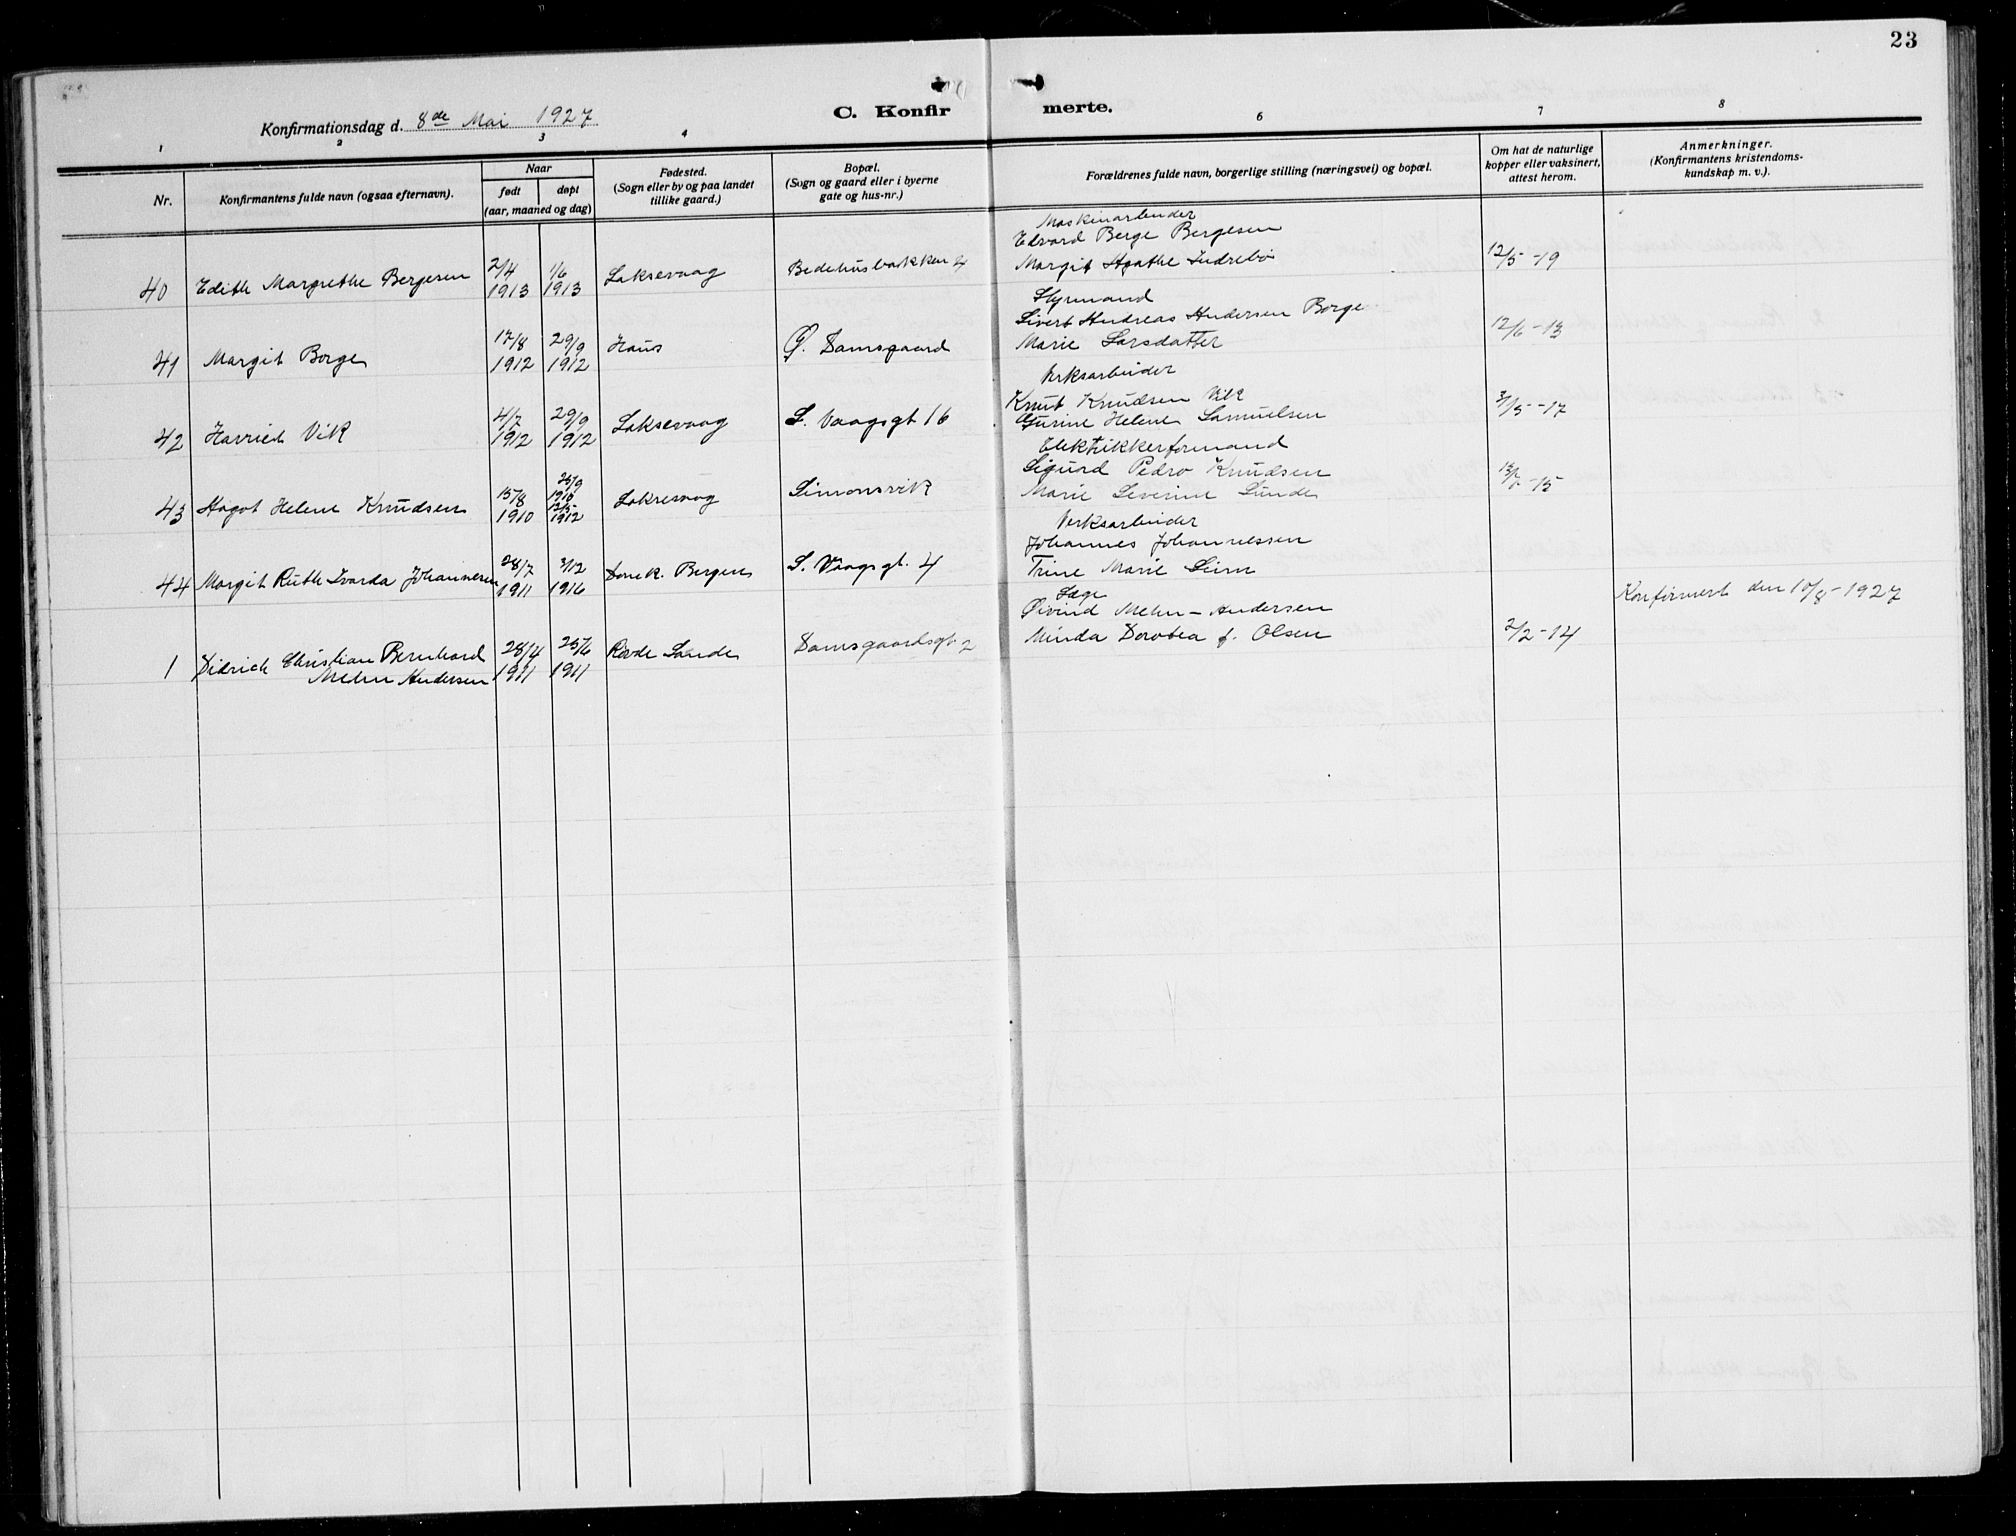 23
C. Konfirmerte.
Konfirmationsdag d. 8de Mai 1927
1 2 3 4 6 7 8
Nr.
Konfirmantens fulde navn (ogsaa efternavn).
Naar
født døpt
(aar, maaned og dag)
Fødested.
(Sogn eller by og paa landet
tillike gaard.)
Bopæl.
(Sogn og gaard eller i byerne
gate og hus-nr.)
Forældrenes fulde navn, borgerlige stilling (næringsvei) og bopæl.
Om hat de naturlige
kopper eller vaksinert,
attest herom.
Anmerkninger.
(Konfirmantens kristendoms-
kundskap m. v.).
Maskinarbeider
Edvard Berge Bergesen
40 Edith Margrethe Bergesen 2/4 1913 1/6 1913 Laksevaag Bedehusbakken Margit Agathe Indrebø 12/5-19
Styrmand
Sivert Andreas Andersen Borge
41 Margit Borge 17/8 1912 29/9 1912 Haus Ø. Damsgaard Marie Larsdatter 12/6-13
Verksarbeider
Knut Knudsen Vik
42 Harriet Vik 4/7 1912 29/9 1912 Laksevaag S. Vaagsgt 16 Gurine Helene Samuelsen 3/5-17
Elektrikkerformand
Sigurd Pedro Knudsen
43 Aagot Helene Knudsen 15/8 1910 25/9 1910 12/5 1912 Laksevaag Simonsvik Marie Severine Lunde 13/7-15
Verksarbeider
Johannes Johannessen
44 Margit Ruth Ivarda Johannesen 28/7 1911 3/12 1916 Domk. Bergen S. Vaagsgt. 4 Trine Marie Seim
Læge
Øivind Mehn-Andersen
Konfirmert den 10/8-1927
1 Didrich Christian Bernhard
Mehn Andersen 28/4 1911 25/6 1911 Røvde Sande Damsgaardsgt 2 Minda Dorotea f. Olsen 2/2-14